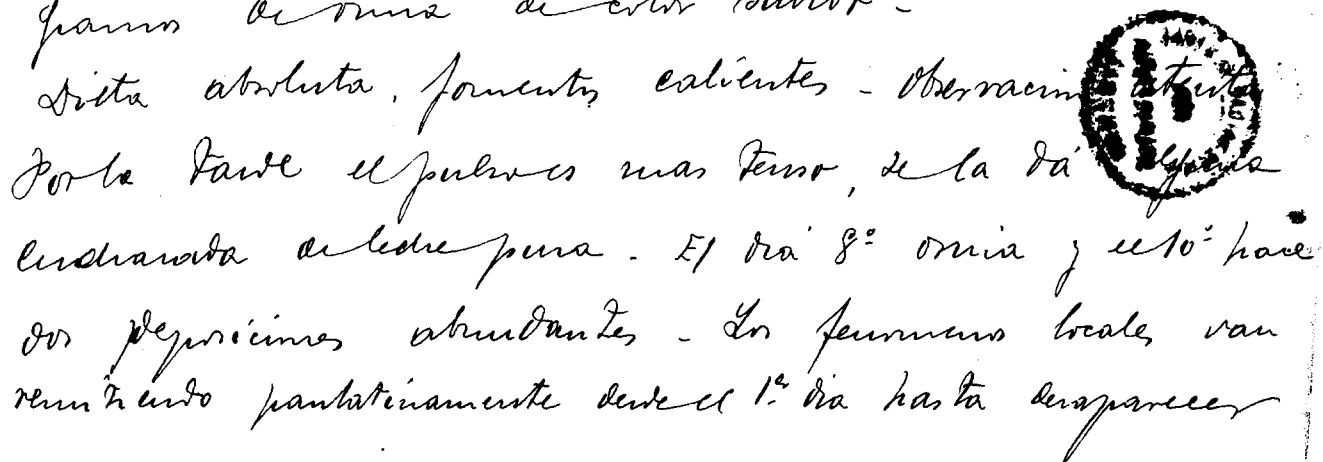 gramos de orina de color
Dieta absoluta, fomentos calientes - Observacion atenta
Por la tarde el pulso es mas tenso, se la dá alguna
cucharada de leche pura. - El dia 8º orina y el 10º hace
dos deposiciones abundantes - Los fenomenos locales van
remitiendo paulatinamente desde el 1er dia hasta desaparecer